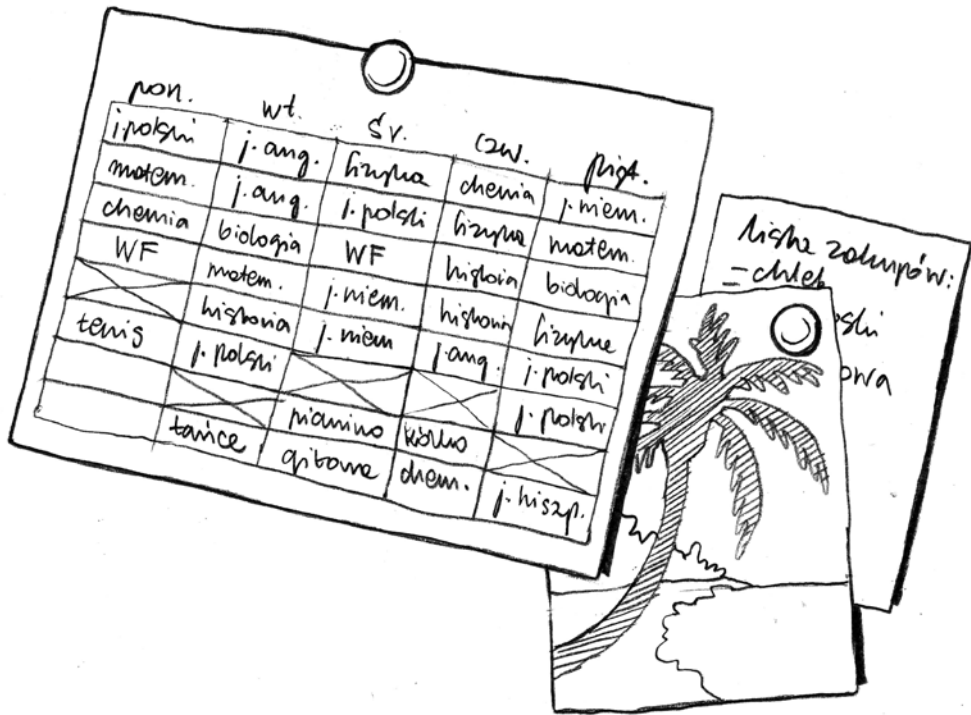 pon. wt. śr. czw. piąt.
j.polski j. ang. fizyka chemia j.niem.
matem. j. ang. j.polski fizyka matem.
chemia biologia WF historia biologia
WF matem. j.niem. historia fizyka
historia j.niem j.ang. j.polski
tenis j.polski j.polski
pianino kółko
tańce gitara chem. j.hiszp.
lista zakupów:
- chleb
owa